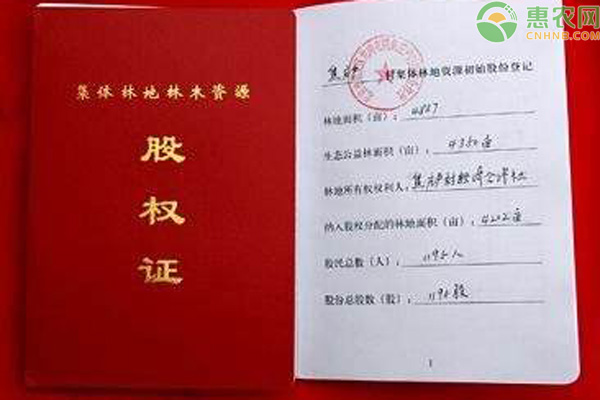 集体林地林木资源
股
权
证
惠农网
CNHNB.COM
村集体林地资源初始股份登记
林地面积（亩）：4827
生态公益林面积（亩）：4350亩
林地所有权权利人：
纳入股权分配的林地面积（亩）：4202亩
股民总数（人）：1195人
股份总股数（股）：1195股
1